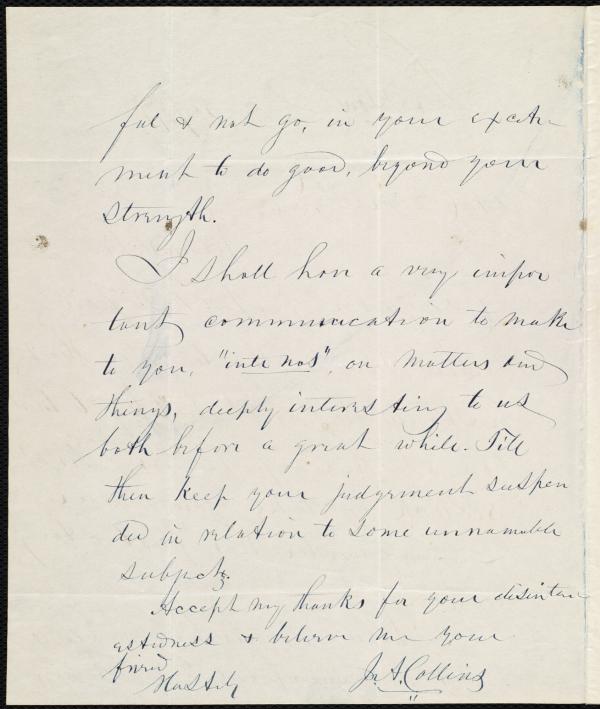 ful & not go, in your excite-
ment to do good, beyond your
strength.
I shall have a very impor
tant communication to make
to you, "inte nos", on matters and
things, deeply interesting to us
both before a great while. Till
then keep your judgement suspen
ded in relation to some unnamable
subjects.
Accept my thanks for your disinter
estedness & believe me your
friend
Hastily J. A. Collins